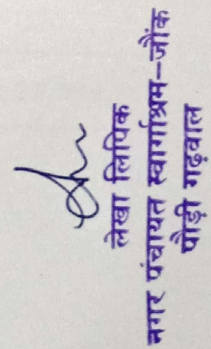 लेखा लिपिक
नगर पंचायत स्वार्गाश्रम–जौंक
पौड़ी गढ़वाल